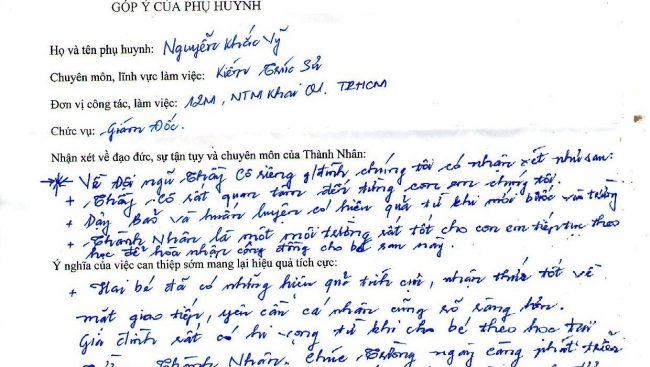 GÓP Ý CỦA PHỤ HUYNH
Họ và tên phụ huynh: Nguyễn Khắc Vỹ
Chuyên môn, lĩnh vực làm việc: Kiến Trúc Sư
Đơn vị công tác, làm việc: 12M, NTM Khai Q1. TPHCM
Chức vụ: Giám Đốc.
Nhận xét về đạo đức, sự tận tụy và chuyên môn của Thành Nhân:
Về Đội ngũ Thầy Cô riêng g/đình chúng tôi có nhận xét như sau:
+ Thầy Cô rất quan tâm đến từng con em chúng tôi.
+ Dạy Bảo và huấn luyện có hiệu quả từ khi mới bước vào trường
+ Thành Nhân là một môi trường rất tốt cho con em tiếp tục theo
học để hòa nhập cộng đồng cho bé sau này.
Ý nghĩa của việc can thiệp sớm mang lại hiệu quả tích cực:
+ Hai bé đã có những hiệu quả tích cực, nhận thức tốt về
mặt giao tiếp, yêu cầu cá nhân cũng rõ ràng hơn.
Gia đình rất có hi vọng từ khi cho bé theo học tại
Thành Nhân. Chúc Trường ngày càng phát triển